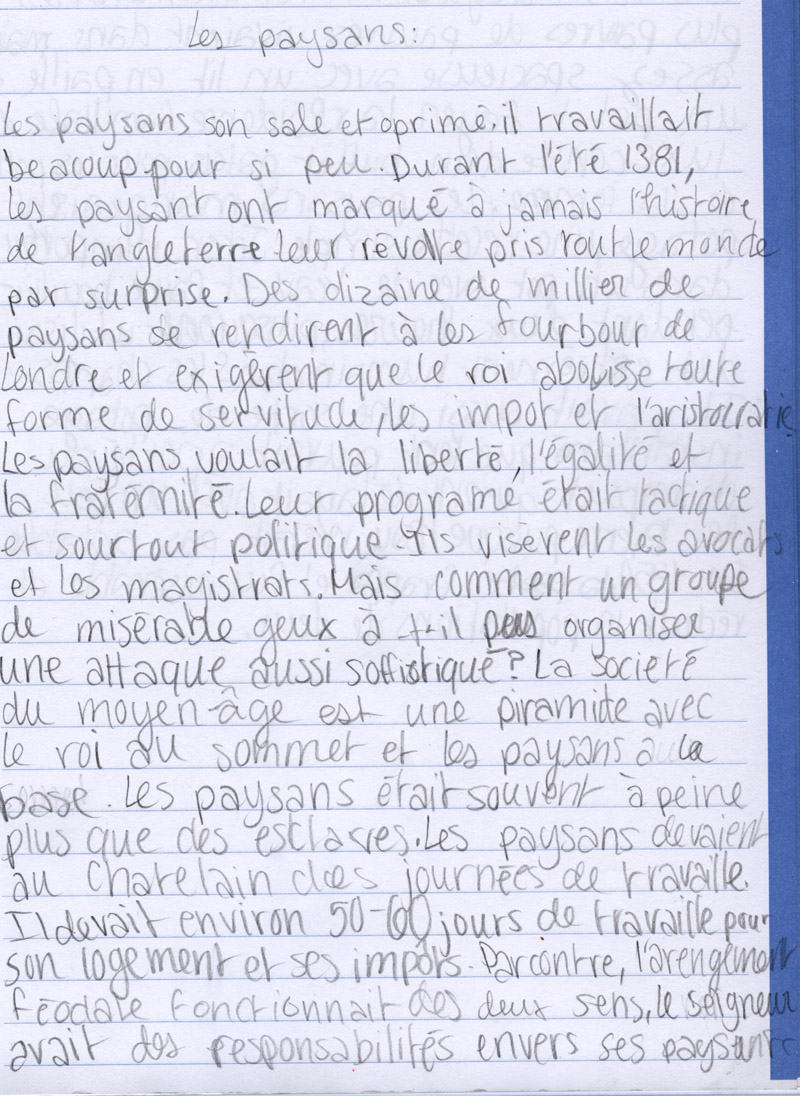 Les paysans:
Les paysans son sale et oprimé, il travaillait
beacoup pour si peu. Durant l'été 1381,
les paysant ont marqué à jamais l'histoire
de l'angleterre leur révolte pris tout le monde
par surprise. Des dizaine de millier de
paysans se rendirent à les fourbour de
Londre et exigèrent que le roi abolisse toute
forme de servitude, les impot et l'aristocratie
Les paysans voulait la liberté, l'égalité et
la fraternité. Leur programé était tactique
et sourtout politique. Ils visèrent les avocats
et les magistrats. Mais comment un groupe
de misérable geux à t-il pus organiser
une attaque aussi soffistiqué? La societé
du moyen-âge est une piramide avec
le roi au sommet et les paysans a la
base. Les paysans était souvent à peine
plus que des esclaves. Les paysans devaient
au Chatelain des journées de travaille.
Il devait environ 50-60 jours de travaille pour
son logement et ses impôts. Parcontre, l'arengement
féodale fonctionnait des deux sens, le seigneur
avait des responsabilités envers ses paysans